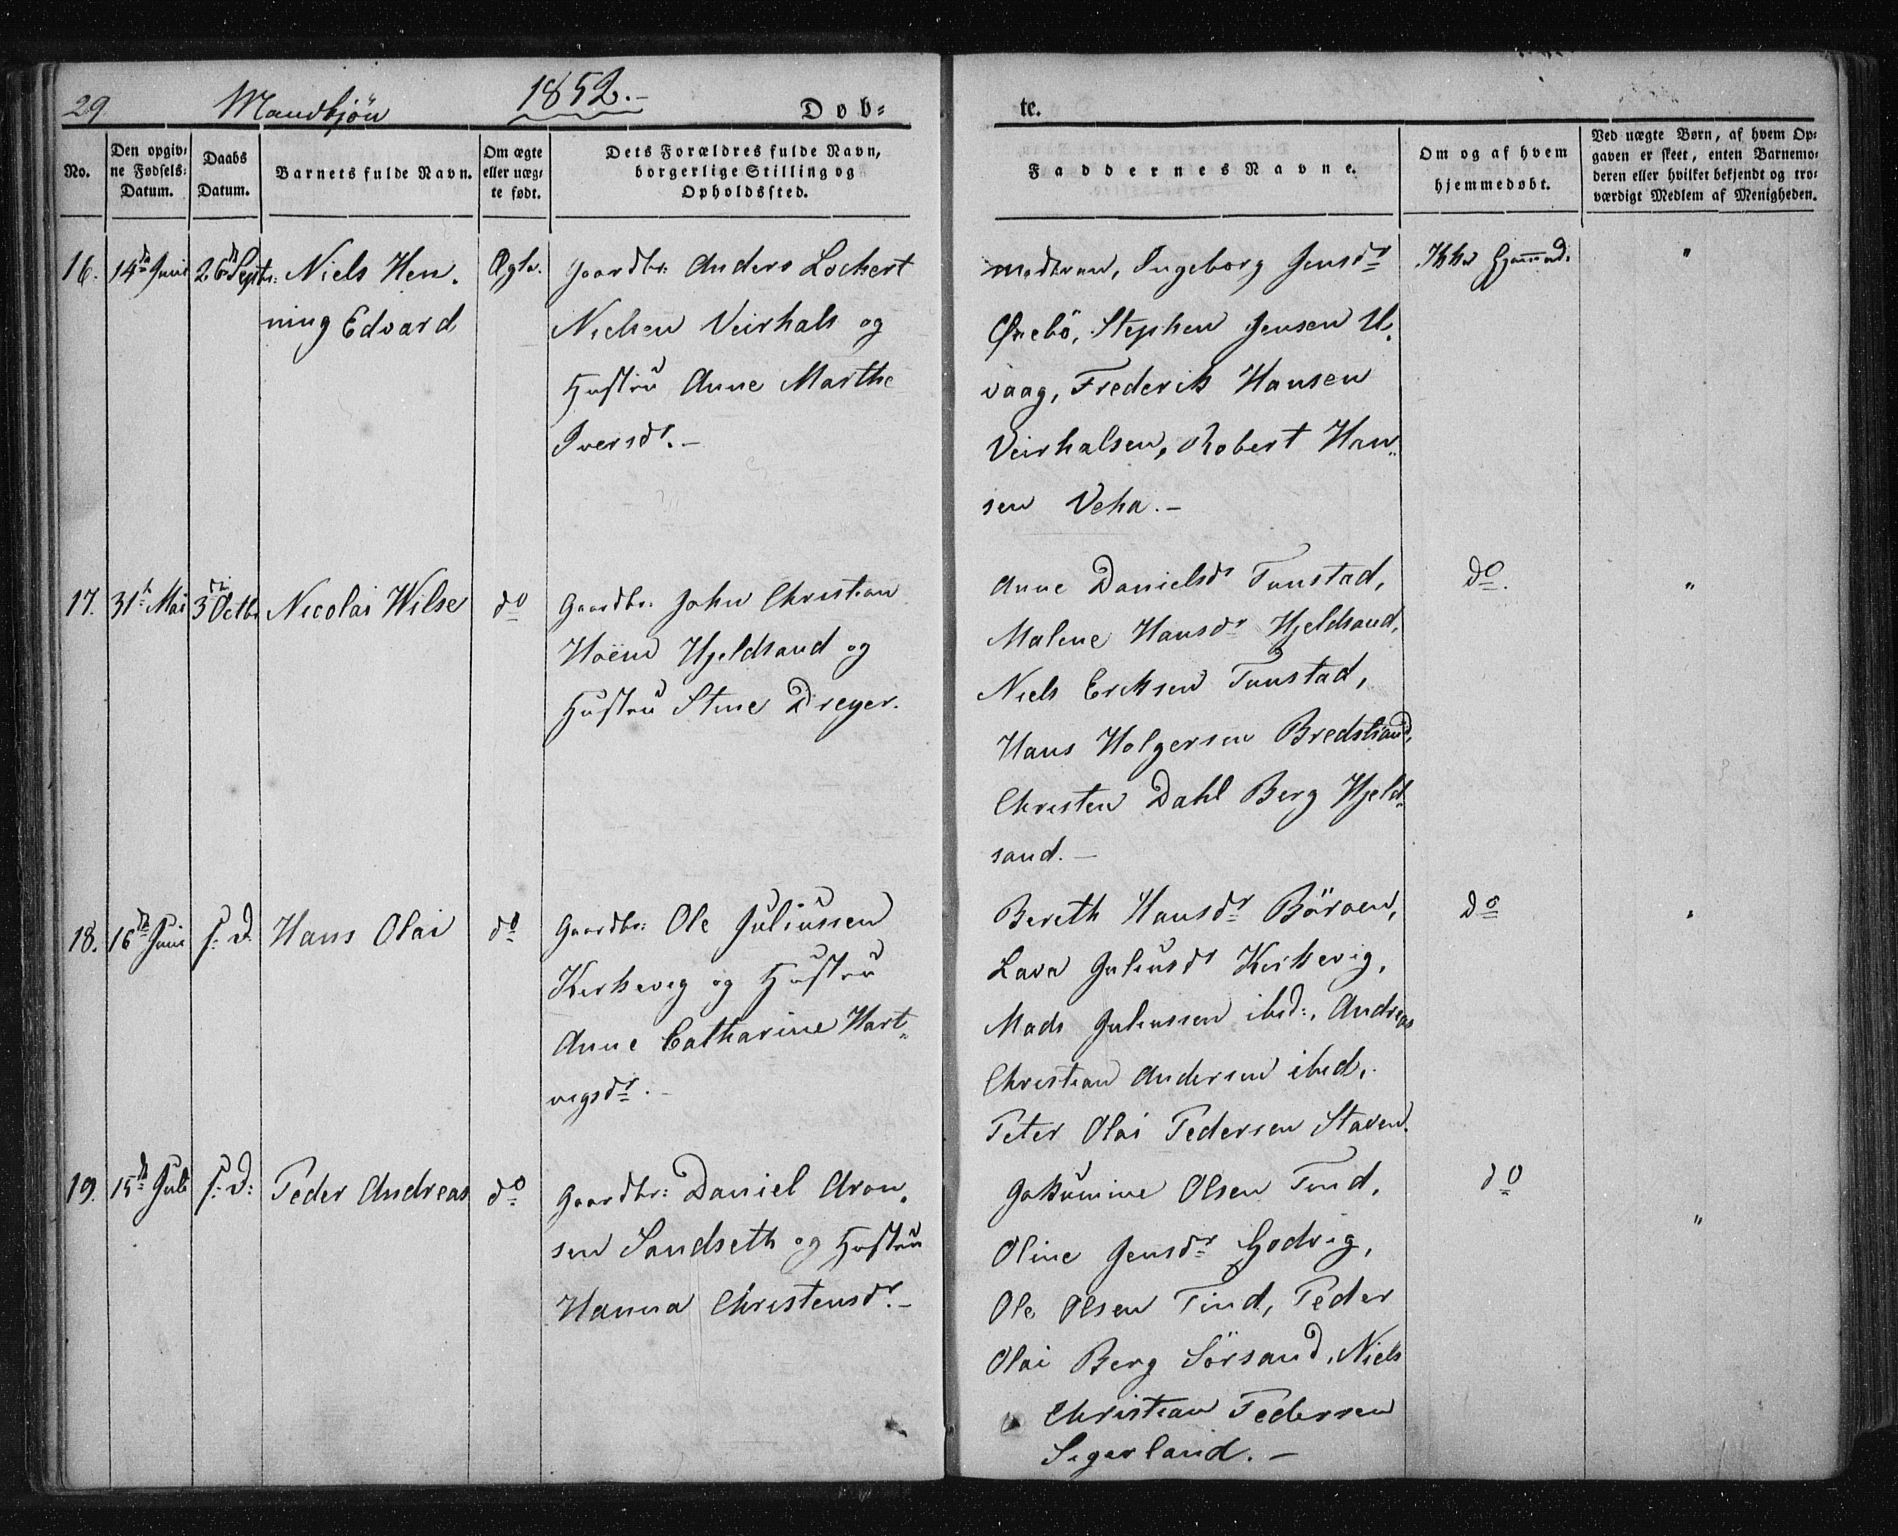 29. Mandkjön 1852.- Døb= te.
No.
Den opgiv=
ne Fødsels=
Datum.
Daabs
Datum.
Barnets fulde Navn.
Om ægte
eller uæg=
te født.
Dets Forældres fulde Navn,
borgerlige Stilling og
Opholdssted.
Faddernes Navne.
Om og af hvem
hjemmedøbt.
Ved uægte Børn, af hvem Op=
gaven er skeet, enten Barnemo=
deren eller hvilket bekjendt og tro=
værdigt Medlem af Menigheden.
16. 14de Juni 26de Septbr: Niels Hen-
ning Edvard
Ægte.
Gaardbr: Anders Lochert
Nielsen Veirhals og
Hustru Anne Marthe
Iversdr.-
Modteren, Ingeborg Jensdr
Ørebö, Stephen Jensen U-
vaag, Frederik Hansen
Veirhalsen, Robert Han-
sen Veha.-
Ikke Hjemmed.
"
17. 31te Mai 3die Octbr. Nicolai Wilse do
Gaardbr. John Christian
Höem Hjeldsand og
Hustru Stine Dreyer.
Anne Danielsdr Tunstad,
Malene Hansdr Hjeldsand,
Niels Eriksen Tunstad,
Hans Holgersen Bredstrand,
Christen Dahl Berg Hjeld-
sand.-
do.
"
18. 16de Juni s: D. Hans Olai do
Gaardbr: Ole Juliussen
Kirkevig og Hustru
Anne Catharine Hart-
vigsdr.-
Bereth Hansdr Böröen,
Lava Juliusdr Kirkevig,
Mads Juliussen ibid:, Andreas
Christian Andersen ibid,
Peter Olai Pedersen Staven.
do
"
19. 15de Juli s: D: Peder Andreas do
Gaardbr: Daniel Aron-
sen Sandseth og Hustru
Hanna Christensdr.-
Jakumine Olsen Tind,
Oline Jensdr Godvig,
Ole Olsen Tind, Peder
Olai Berg Sörsand, Niels
Christian Pedersen
Segerland.-
do
"